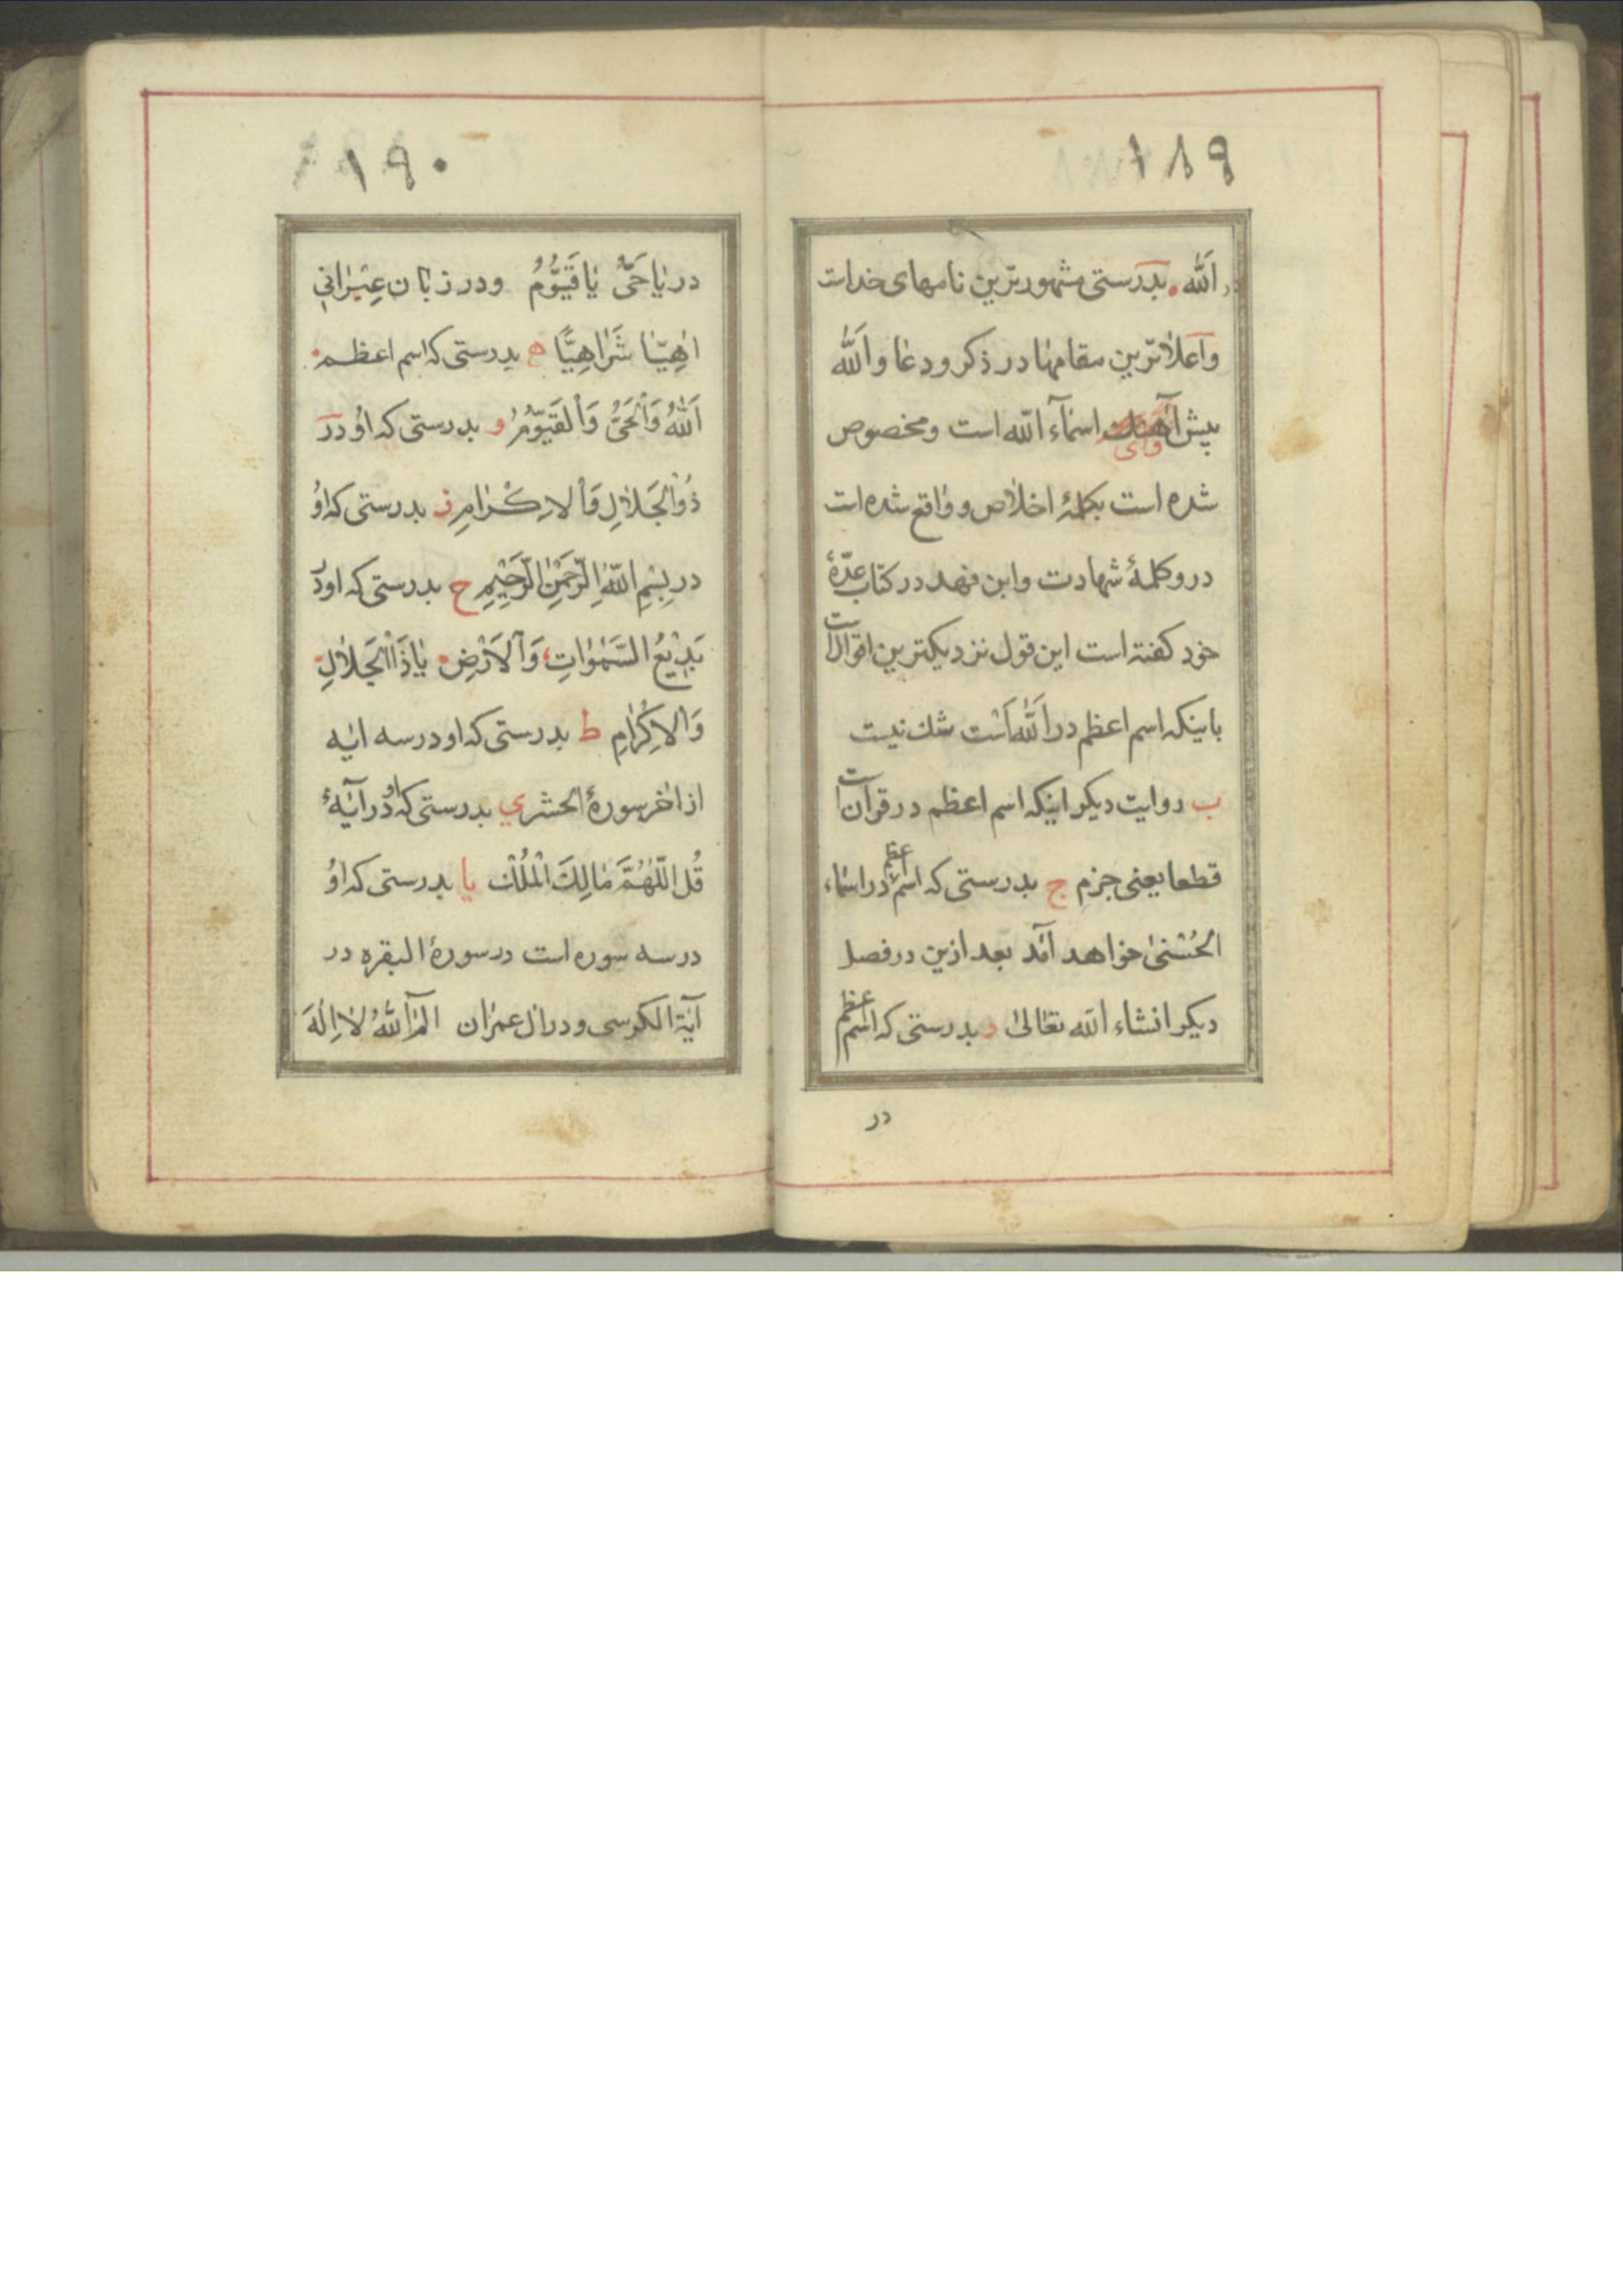 ١٨٩
الله بدرستی مشهورترین نامهای خداست
واعلاترین مقامها در ذکر ودعا والله
پیش اسمآء الله است ومخصوص
شده است بکلمهٔ اخلاص وواقع شده است
درو کلمهٔ شهادت وابن فهد در کتاب عدّهٔ
خود کفته است این قول نزدیکترین اقوالست
باینکه اسم اعظم در اللهاست شك نیست
ب روایت دیکر اینکه اسم اعظم در قرآن است
قطعا یعنی جزم ج بدرستی که اسم اعظم در اسماء
الحُسْنیٰ خواهد آمد بعد ازین در فصل
دیکر انشاء الله تعالیٰ د بدرستی که اسم اعظم
در
١٩٠
در یا حَیُّ یا قَیُّومُ ودر زبان عِبْرانی
اهِیّا شَراهِیّا ه بدرستی که اسم اعظم
اَللهُ وَالْحَیُّ وَالْقَیُّومُ و بدرستی که اوُ در
ذُوالْجَلالِ وَالاِکْرامِ ز بدرستی که اوُ
در بِسْمِ اللهِ الرَّحْمنِ الرَّحیْمِ ح بدرستی که او در
بَدیْعُ السَّمٰوٰاتِ وَالاَرْضِ یا ذَاالْجَلالِ
وَالاِکْرٰامِ ط بدرستی که او در سه ایه
از اخر سورهٔ الحشر ي بدرستی که او در آیهٔ
قُلِ اللّٰهُمَّ مٰالِكَ الْمُلْك یا بدرستی که اوُ
در سه سوره است در سورهٔ البقره در
آیة الکرسی ودر ال عمران الم اَللهُ لا اِلٰهَ